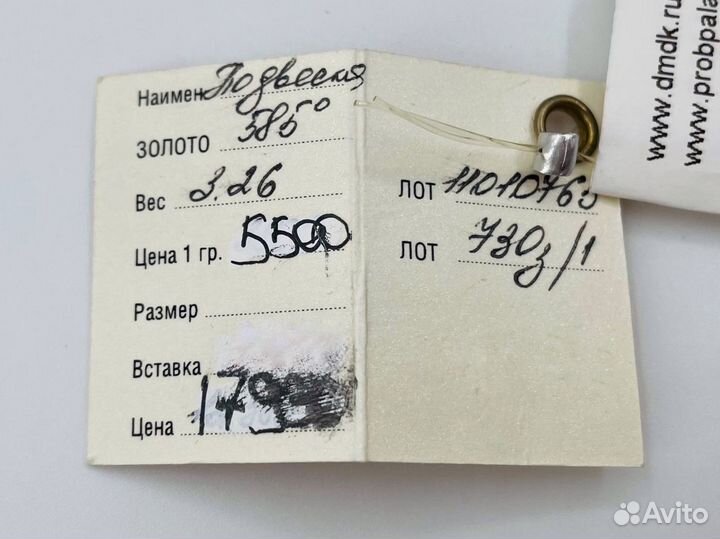 Наимен. Подвеска
золото 585°
Вес 3.26
Цена 1 гр. 5500
Размер
Вставка
Цена 179
лот 11010763
лот 730з/1
www.dmdk.ru
www.probpala
Avito